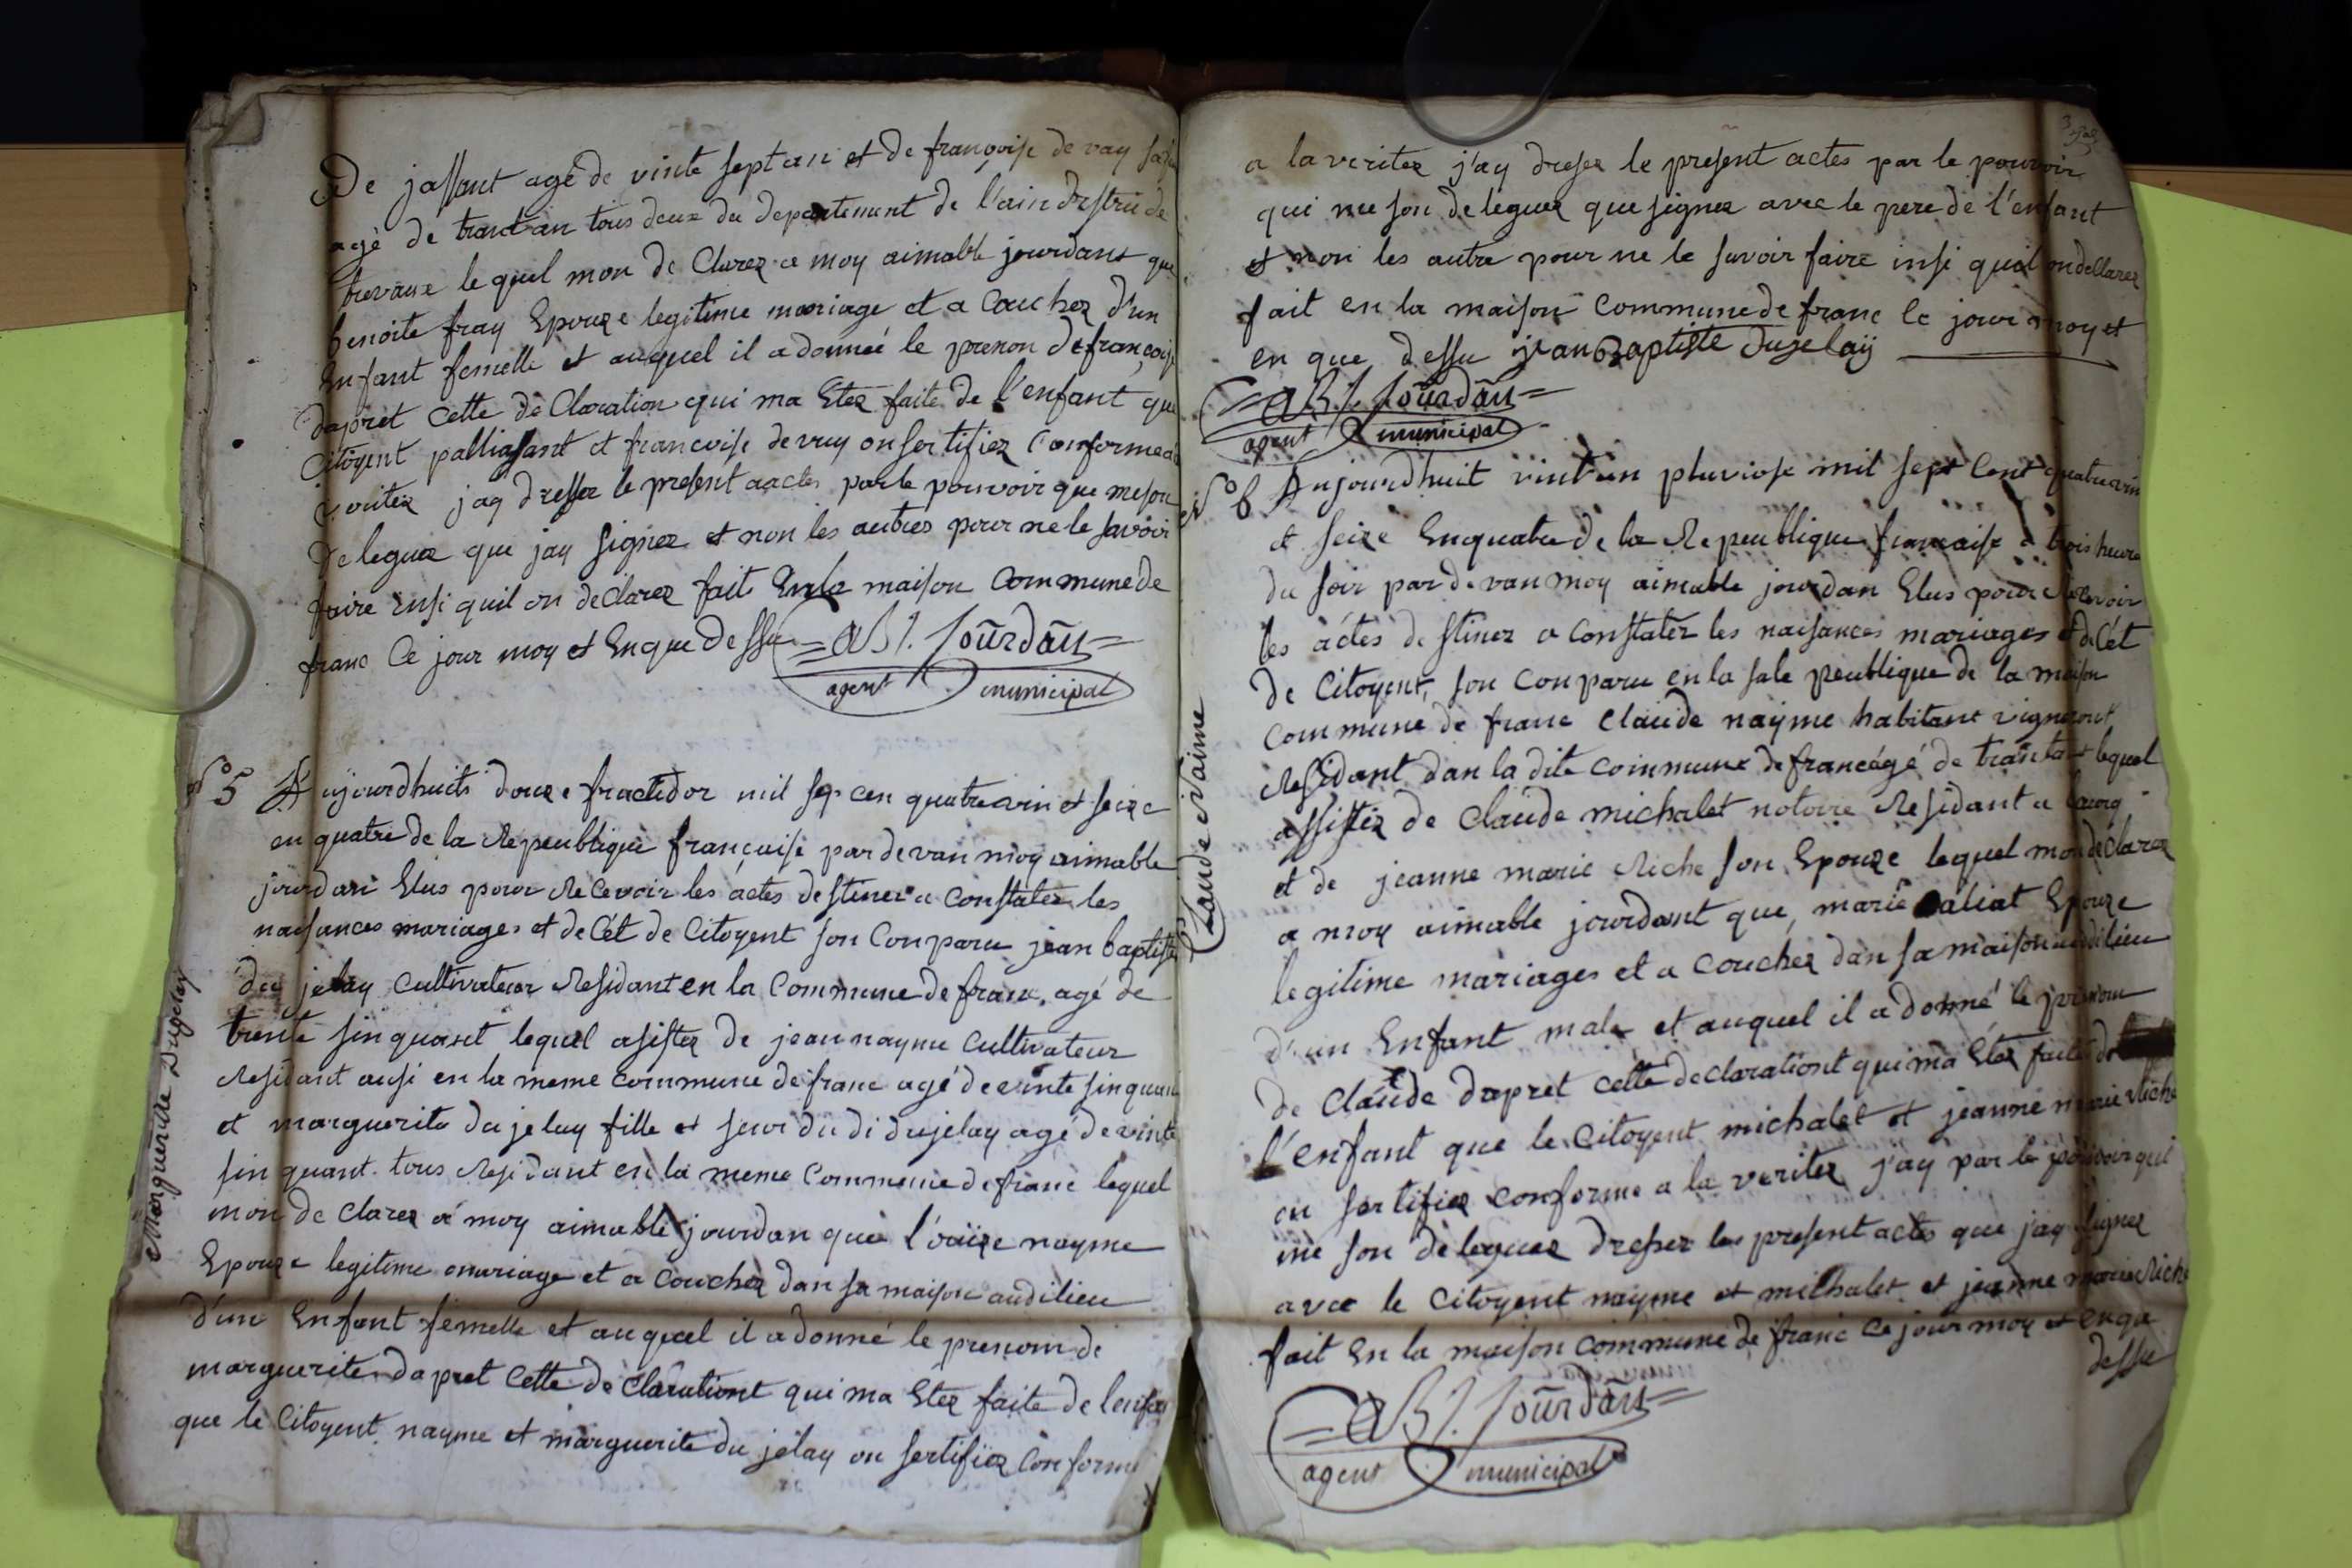 De jassant agé de vinte septan et de francoise de vay
agé de trantan tous deux du departement de l'ain distri de
trevaux le quel mon de Clarez a moy aimable jourdant que
benoite fray Epouze legitime mariage et a Couchez d'un
Enfant femelle et auquel il a donneé le prenon de francoise
dapret cette de Claration qui ma Etez faite de l'enfant que
Citoyent et francoise de vay on sertifiez Conforme a
veritez jay dressez le present actes par le pouvoir que me son
De leguez que jay signez et non les autres pour ne le savoir
faire insi quil on declarez fait En la maison Commune de
franc Ce jour moy et En que Dessu = ABJ. Jourdan =
agent municipal
Marguerite Dugelay
N° 5 Aujourdhuits douze fructidor mil sep cen quatrevin et seize
en quatre de la Republique française pardevan moy aimable
jourdan Elus pour Recevoir les actes destinez a Constatez les
naisances mariages et de Cét de Citoyent son Conparu jean baptiste
du jelay Cultivateur Residant en la Commune de franc, agé de
trente sinquant lequel asistez de jean nayme Cultivateur
Residant ausi en la meme Commune de franc agé de vinte sinquant
et marguerite du jelay fille et seur du di dujelay agé de vinte
sinquant tous Residant en la meme Commune de franc lequel
mon de Clarez a moy aimable jourdan que l'ouize nayme
Epouze legitime mariage et a Couchez dan sa maison audilieu
d'un Enfant femelle et auquel il a donné le prenom de
marguerite dapret Cette de Clarationt qui ma Etez faite de lenfan
que le Citoyent nayme et marguerite du jelay on sertifiez Conforme
a la veritez j'ay dresez le present actes par le pouvoir
qui me son deleguez que signez avec le pere de l'enfant
et non les autre pour ne le savoir faire insi quil on deClarez
fait en la maison Commune de franc le jour moy et
en que dessu jean Baptiste Dugelaÿ
= ABJ. Jourdan =
agent municipal
Claude Naime
N° 6 Aujourdhuit vint un pluviose mil sept Cent quatrevin
et seize En quatre de la Republique francaise a trois heure
du soir par devan moy aimable jourdan Elus pour Recevoir
les actes destinez a Constatez les naisances mariages et deCét
de Citoyent, son Conparu en la sale peublique de la maison
Commune de franc Claude naÿme habitant vigneront
Residant dan la dite Commune de franc agé de lequel
assistez de Claude michalet notoire Residant a
et de jeanne marie Riche son Epouze lequel mon deClarez
a moy aimable jourdant que, marie Epouze
legitime mariages et a Couchez dan sa maison audilieu
d'un Enfant male et auquel il a donné le prenom
de Claude dapret Cette declarationt qui ma Etez faite de
l'enfant que le Citoyent michalet et jeanne marie Riche
on sertifiez Conforme a la veritez j'ay par le pouvoir qui
me son deleguez dressez les present actes que jay signez
avec le Citoyent nayme et michalet et jeanne marie Riche
fait En la maison Commune de franc Ce jour moy et enque
dessu
= ABJ. Jourdan =
agent municipal